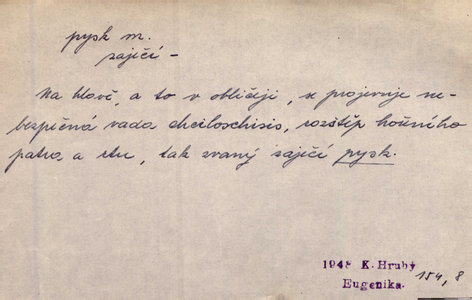 pysk m.
zaječí –
Na hlavě, a to v obličeji, se projevuje ne-
bezpečná vada cheiloschisis, rozštěp hořního
patra a rtu, tak zvaný zaječí pysk.
1948 K. Hrubý
Eugenika.
154, 8